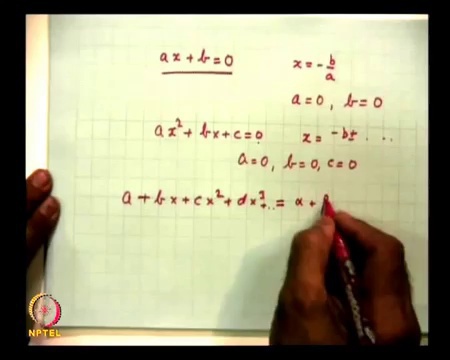 ax + b = 0 x = -b/a
a = 0, b = 0
ax² + bx + c = 0 x = -b± . . .
a = 0, b = 0, c = 0
a + bx + cx² + dx³ + .. = α +
NPTEL